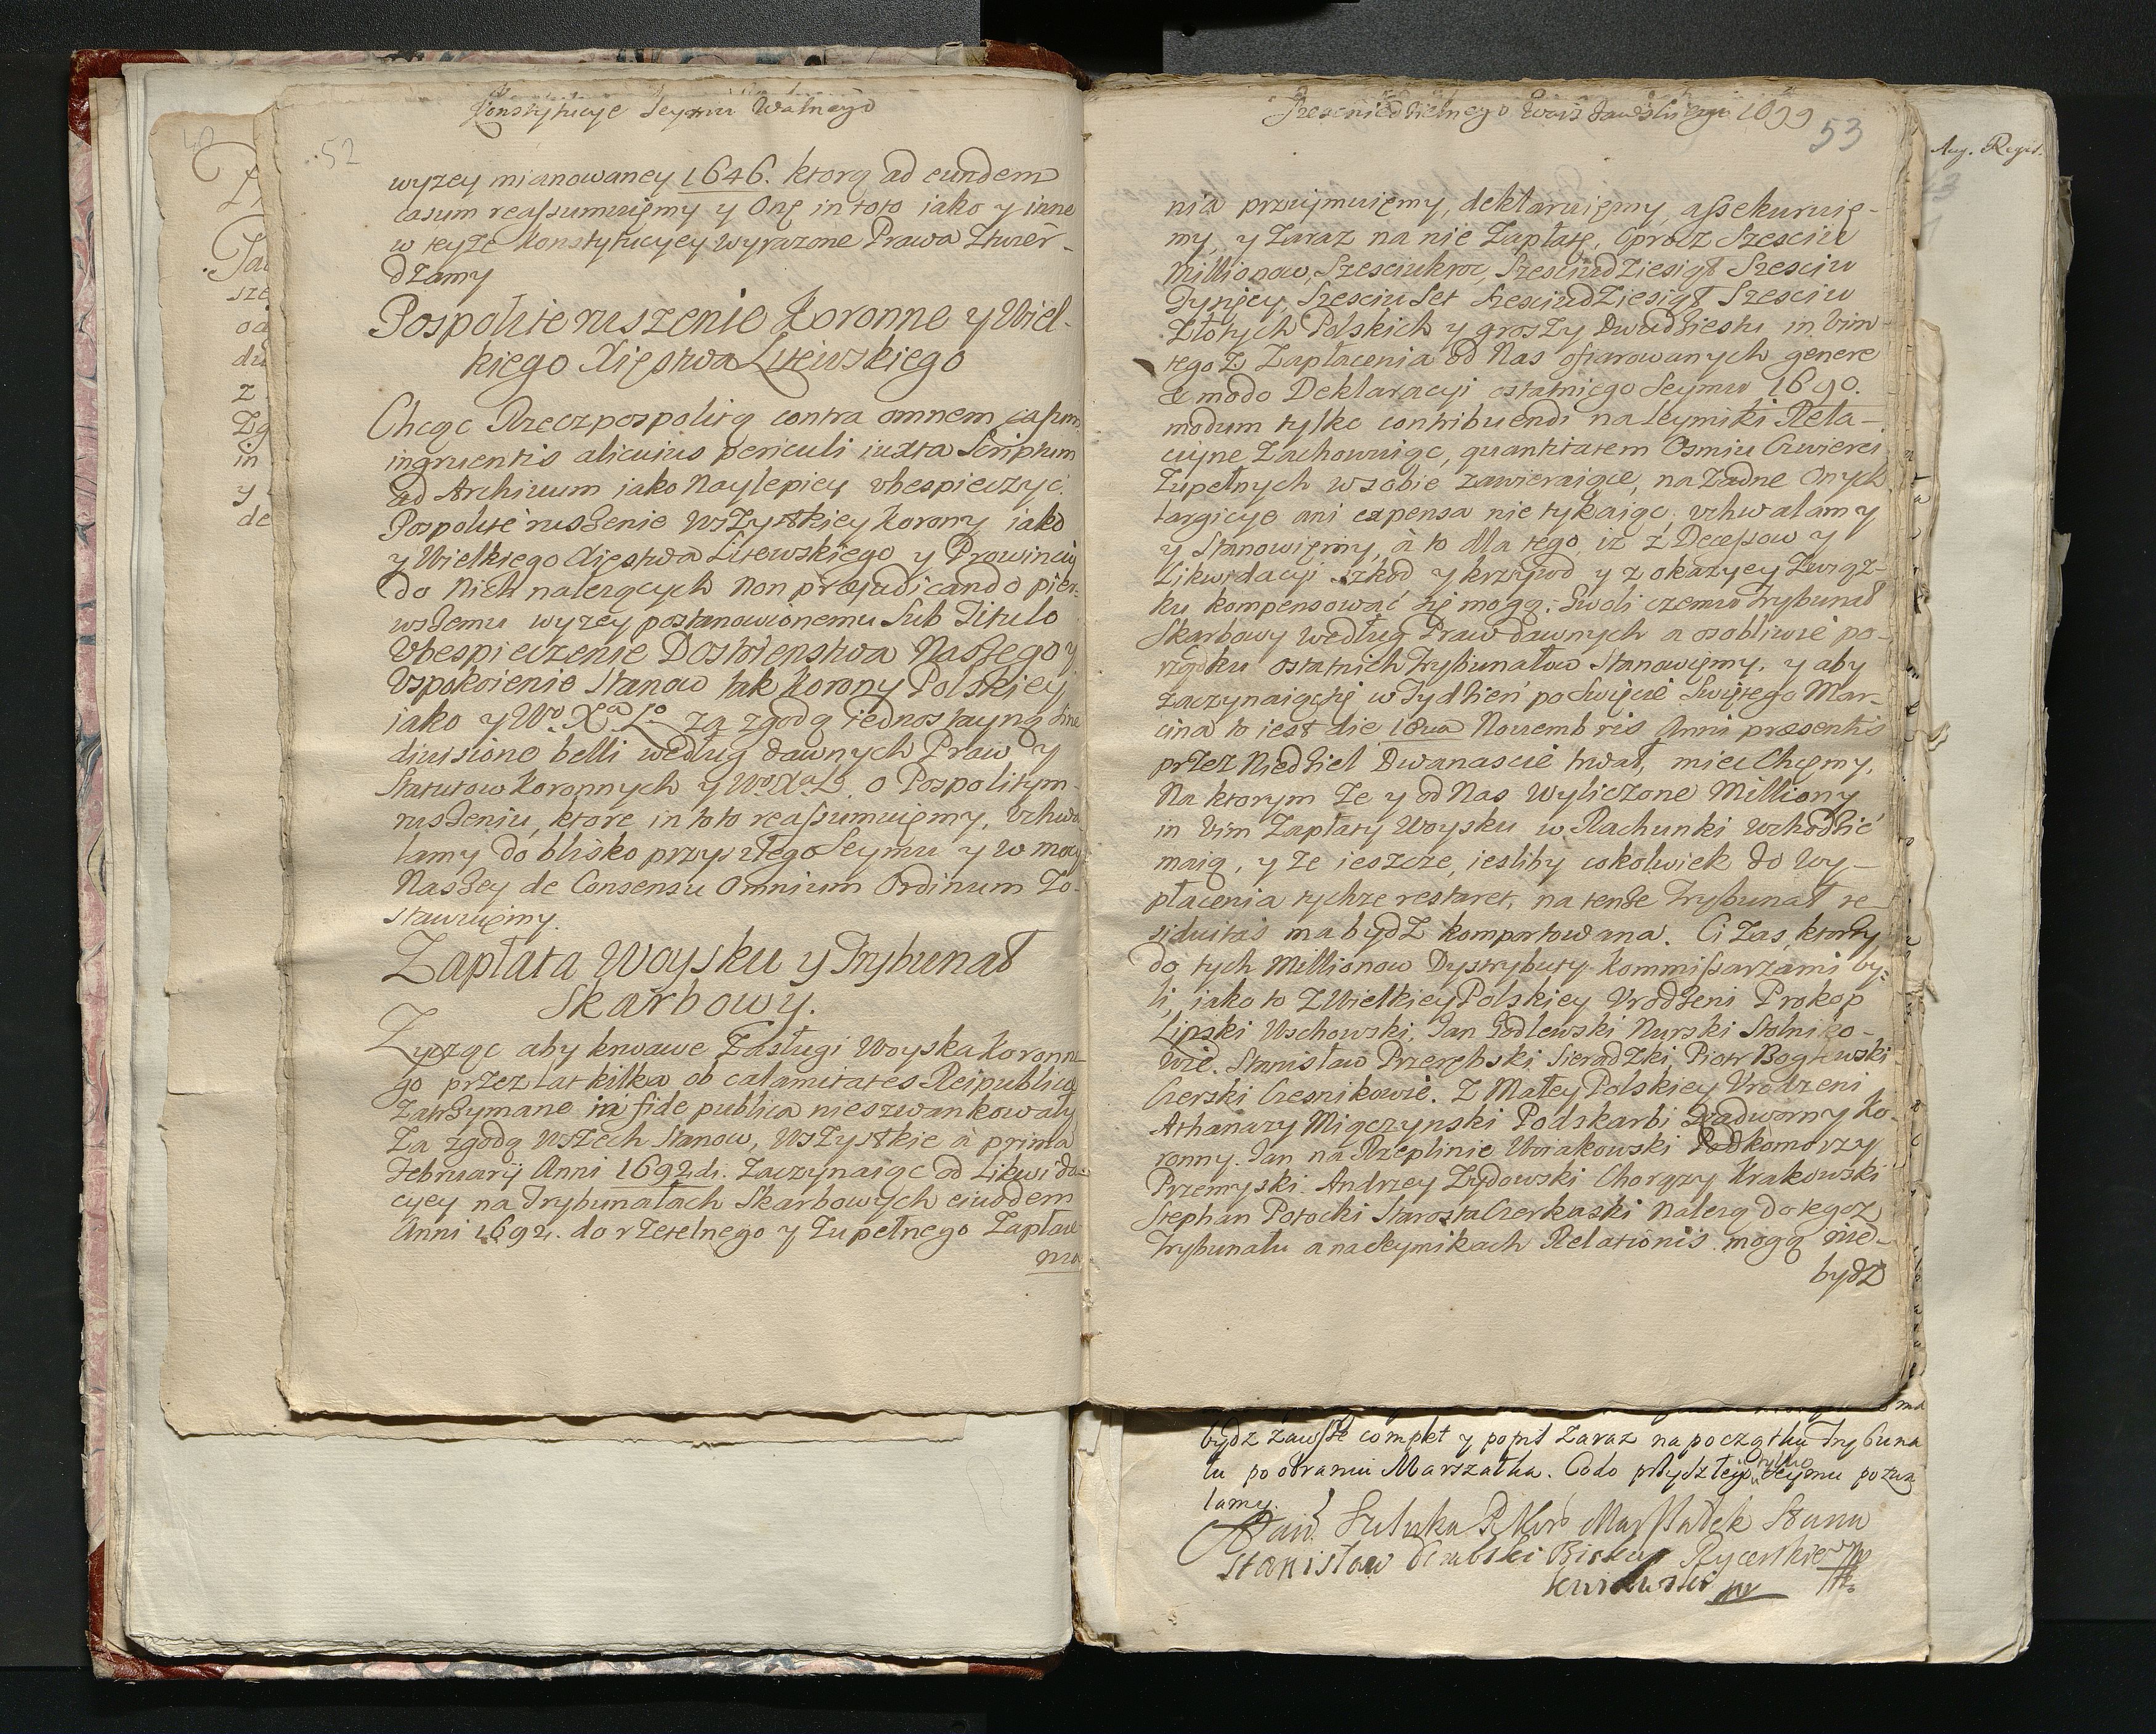 Konstytucye Seymu Walnego
52
wyzey mianowaney 1646. ktorą ad eundem
casum reassumuięmy y Onę in toto iako y inne
w teyże Konstytucyey wyrazone Prawa ztwier-
dzamy
Pospolite ruszenie Koronne y Wiel-
kiego Xięstwa Litewskiego
Chcąc Rzeczpospolitą contra omnem casum
ingruentis alicuius periculi iuxta Scriptum
ad Archivum iako Naylepiey vbespieczyć.
Pospolite ruszenie wszystkiey Korony iako
y Wielkiego Xięstwa Litewskiego y Prowincii
do Nich nalezących Non præjudicando pier-
wszemu wyzey postanowionemu Sub Titulo
Vbespieczenie Dostoienstwa Naszego y
Vspokoienie Stanow tak Korony Polskiey
iako y Wo Xa Lo za zgodą iednostayną sine
divisione belli według dawnych Praw y
Statutow Koronnych y Wo Xa L. o Pospolitym
ruszeniu, ktore in toto reassumuięmy, vchwa
lamy do blisko przyszłego Seymu y w mocy
Naszey de Consensu Omnium Ordinum Zo-
stawuięmy.
Zapłata Woysku y Trybunał
Skarbowy.
Zycząc aby krwawe Zasługi Woyska Koronne
go przez lat kilka ob calamitates Reipublicæ
Zatrzymane in fide publica nieszwankowały
Za zgodą wszech Stanow, wszystkie à prima
Februarij Anni 1692di. Zaczynaiąc od Likwida-
cyey na Trybunałach Skarbowych eiusdem
Anni 1692. do rzetelnego y Zupełnego Zapłace
nia
Szescniedzielnego Warszawskiego 1699
53
nia przyimuięmy, deklaruięmy, assekuruię-
my, y Zaraz na nie Zapłatę, Oprocz Szesciu
Millionow, Szesciukroc, Szesciudziesiąt Szesciu
Tysięcy, Szesciu Set Szesciudziesiąt Szesciu
Złotych Polskich y groszy Dwudziestu in vim
tegoż Zapłacenia od Nas ofiarowanych genere
& modo Deklaracyi ostatniego Seymu 1690.
modum tylko contribuendi na Seymiki Rela-
cyine Zachowuiąc, quantitatem Osmiu Cwierci
Zupełnych w sobie zawieraiące, na Zadne Onych
largicye ani expensa nie tykaiąc, vchwalamy
y Stanowięmy, à to dla tego, iż z Decessow y
Likwidacyi szkod y krzywd y z okazyey Związ-
ku kompensować się mogą: Gwoli czemu Trybunał
Skarbowy według Praw dawnych a osobliwie po-
rządku ostatnich Trybunałow Stanowięmy, y aby
zaczynaiąc się w Tydzień po Swięcie Swiętego Mar-
cina to iest die 18va Novembris Anni præsentis
przez Niedziel Dwanascie trwał, miec Chcęmy,
Na ktorym Ze y od Nas Wyliczone Milliony
in vim Zapłaty Woysku w Rachunki wchodzić
maią, y ze ieszcze, iesliby cokolwiek do wy-
płacenia tychze restaret, na tenże Trybunał re-
siduitas ma bydz komportowana. Ci Zas, ktorzy
do tych Millionow Dystrybuty Kommissarzami by-
li, iako to z Wielkiey Polskiey Vrodzeni Prokop
Lipski Wschowski, Jan Godlewski Nurski Stolniko-
wie. Stanisław Przerębski Sieradzki, Piotr Boglewski
Czerski Czesnikowie. Z Małey Polskiey Vrodzeni
Athanazy Miączynski Podskarbi Nadworny Ko-
ronny. Jan na Rzeplinie Woiakowski Podkomorzy
Przemyski. Andrzey Zydowski Chorązy Krakowski
Stephan Potocki Starosta Czerkaski Nalezą do tegoz
Trybunału a na Seymikach Relationis mogą nie-
bydz
bydz zawsze complet y popis Zaraz na początku Trybuna
łu po obraniu Marszałka. Co do przyszłego tylko Seymu pozwa
lamy.
Marszałek Stanu
Stanisław Biskup Rycerskiego
Aug. Regit.